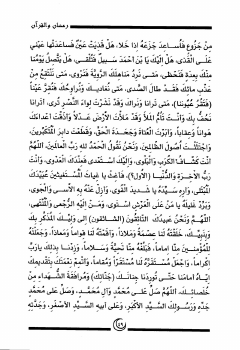 رمضان والقرآن
مِنْ جَزُوعٍ فَأُساعِدَ جَزَعَهُ إذا خَلا، هَلْ قَذِيَتْ عَيْنٌ فَساعَدَتْها عَيْني
عَلَى الْقَذى، هَلْ إلَيْكَ يا بْنَ أحْمَدَ سَبيلٌ فَتُلْقى، هَلْ يَتَّصِلُ يَوْمُنا
مِنْكَ بِعِدَةٍ فَنَحْظى، مَتى نَرِدُ مَناهِلَكَ الرَّوِيَّةَ فَنَرْوى، مَتى نَنْتَقِعُ مِنْ
عَذْبِ مائِكَ فَقَدْ طالَ الصَّدى، مَتى نُغاديكَ وَنُراوِحُكَ فَنُقِرُّ عَيْناً
(فَتَقُرُّ عُيُوننا)، مَتى تَرانا وَنَراكَ وَقَدْ نَشَرْتَ لِواءَ النَّصْرِ تُرى، أتَرانا
نَحُفُّ بِكَ وَأنْتَ تَأُمُّ الْمَلأَ وَقَدْ مَلأْتَ الأَرْضَ عَدْلاً وَأذَقْتَ أعْداءَكَ
هَواناً وَعِقاباً، وَأبَرْتَ الْعُتاةَ وَجَحَدَةَ الْحَقِّ، وَقَطَعْتَ دابِرَ الْمُتَكَبِّرينَ،
وَاجْتَثَثْتَ أُصُولَ الظّالِمينَ، وَنَحْنُ نَقُولُ الْحَمْدُ للهِ رَبِّ الْعالَمينَ، اَللّهُمَّ
أنْتَ كَشّافُ الْكُرَبِ وَالْبَلْوى، وَإلَيْكَ أسْتَعْدى فَعِنْدَكَ الْعَدْوى، وَأنْتَ
رَبُّ الآخِرَةِ وَالدُّنْيا (الأولى)، فَأغِثْ يا غِياثَ الْمُسْتَغيثينَ عُبَيْدَكَ
الْمُبْتَلى، وَأرِهِ سَيِّدَهُ يا شَديدَ الْقُوى، وَأزِلْ عَنْهُ بِهِ الأَسى وَالْجَوى،
وَبَرِّدْ غَليلَهُ يا مَنْ عَلَى الْعَرْشِ اسْتَوى، وَمَنْ إلَيْهِ الرُّجْعى وَالْمُنْتَهى،
اَللّهُمَّ وَنَحْنُ عَبيدُكَ التّائِقُونَ (الشائقون) إلى وَلِيِّكَ الْمُذَكِّرِ بِكَ
وَبِنَبِيِّكَ، خَلَقْتَهُ لَنا عِصْمَةً وَمَلاذاً، وَأقَمْتَهُ لَنا قِواماً وَمَعاذاً، وَجَعَلْتَهُ
لِلْمُؤْمِنينَ مِنّا اِماماً، فَبَلِّغْهُ مِنّا تَحِيَّةً وَسَلاماً، وَزِدْنا بِذلِكَ يارَبِّ
اِكْراماً، وَاجْعَلْ مُسْتَقَرَّهُ لَنا مُسْتَقَرّاً وَمُقاماً، وَأتْمِمْ نِعْمَتَكَ بِتَقْديمِكَ
اِيّاهُ أمامَنا حَتّى تُورِدَنا جِنانَكَ (جَنّاتِكَ) وَمُرافَقَةَ الشُّهَداءِ مِنْ
خُلَصائِكَ، اَللّهُمَّ صَلِّ عَلى مُحَمَّدٍ وَآلِ مُحَمَّدٍ، وَصَلِّ عَلى مُحَمَّدٍ
جَدِّهِ وَرَسُولِكَ السَّيِّدِ الأَكْبَرِ، وَعَلى أبيهِ السَّيِّدِ الأَصْغَرِ، وَجَدَّتِهِ